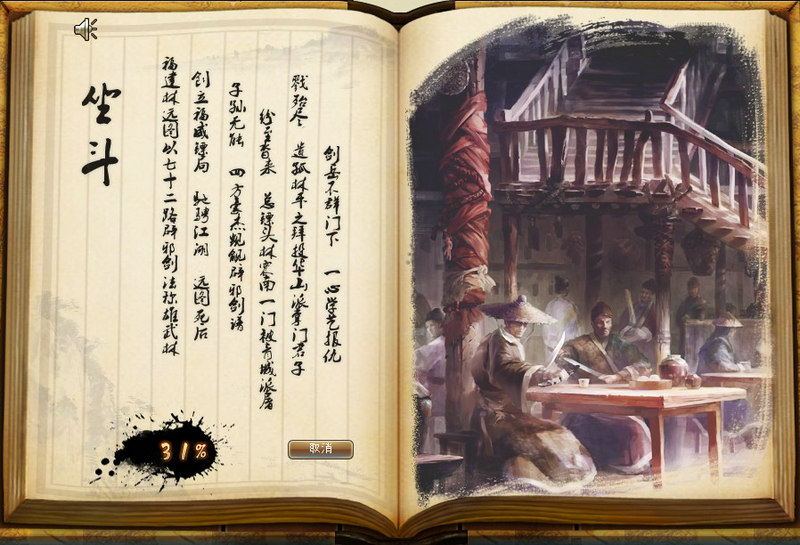 坐斗
福建林远图以七十二路辟邪剑法称雄武林
创立福威镖局 驰骋江湖 远图死后
子孙无能 四方豪杰觊觎辟邪剑谱
纷至沓来 总镖头林震南一门被青城派屠
戮殆尽 遗孤林平之拜投华山派掌门君子
剑岳不群门下 一心学艺报仇
31%
取消